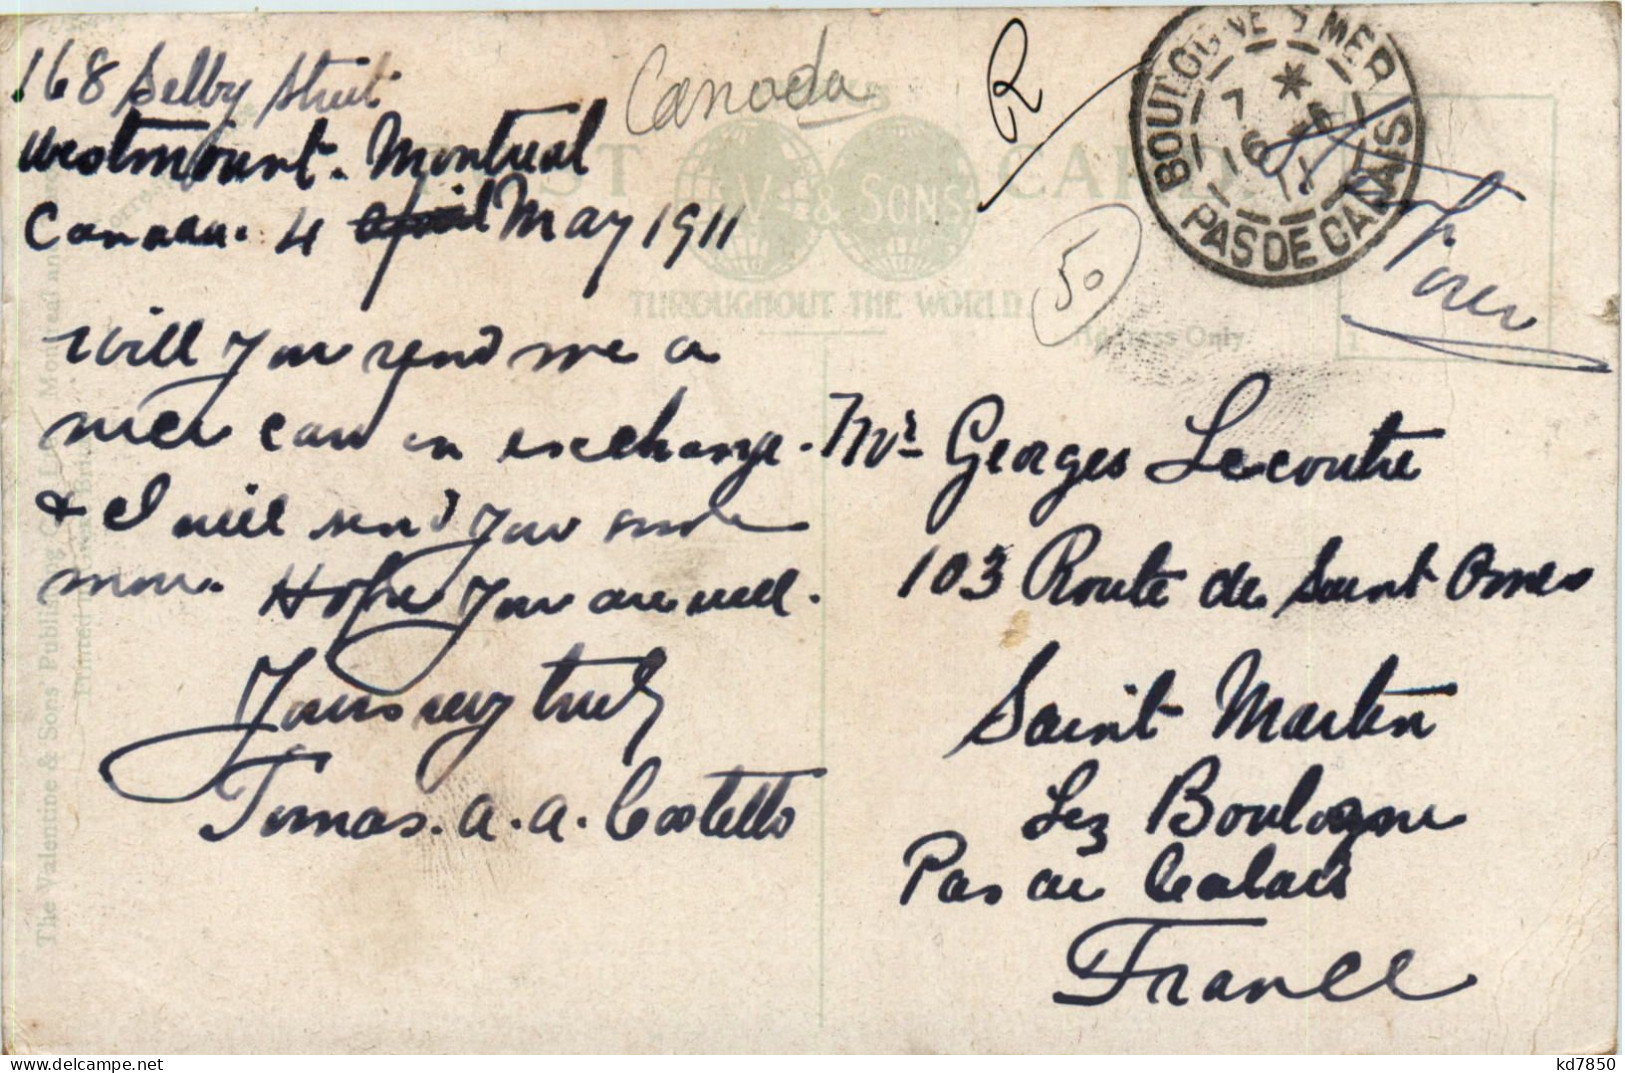 168 Selby Street
Westmount. Montreal
Canada. 4 April May 1911
Will you send me a
nice card in exchange.
& I will send you some
more. Hope you are well.
Yours very truly
Tomas. A. A. Costello
Canada
R
50
POST CARD
V. & SONS
THROUGHOUT THE WORLD
Address Only
BOULOGNE S MER
7 *
16 - 5
11
PAS DE CALAIS
Mr Georges Lecoutre
103 Route de Saint Omer
Saint Martin
Lez Boulogne
Pas de Calais
France
The Valentine & Sons' Publishing Co. Ltd. Montreal and
Printed in Great Britain
kd7850